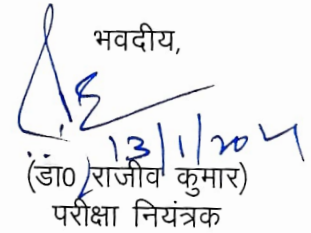 भवदीय,
13/1/204
(डा0 राजीव कुमार)
परीक्षा नियंत्रक